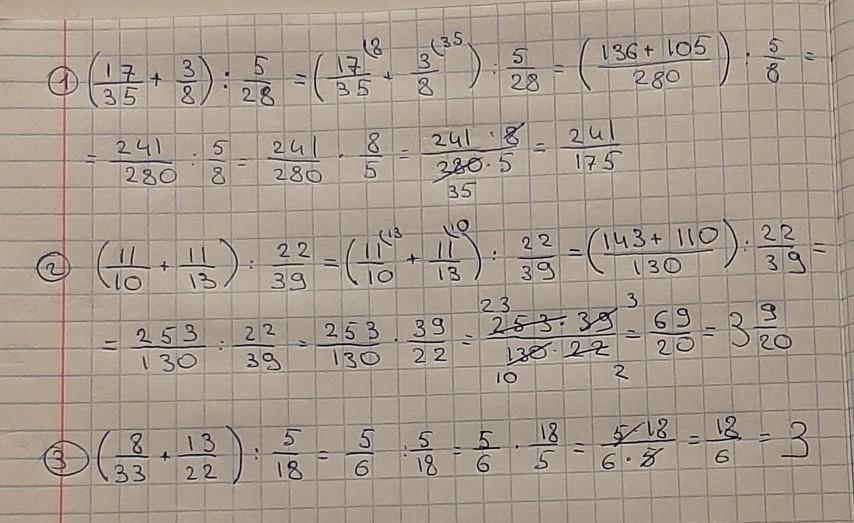 ① (17/35 + 3/8) : 5/28 = (17/35 (8 + 3/8 (35) : 5/28 = (136+105/280) : 5/8 =
= 241/280 : 5/8 = 241/280 · 8/5 = 241·8/280·5 35 = 241/175
② (11/10 + 11/13) : 22/39 = (11/10 (13 + 11/13 (10) : 22/39 = (143+110/130) : 22/39 =
= 253/130 : 22/39 = 253/130 · 39/22 = 23 253·39 3/130·22 10 2 = 69/20 = 3 9/20
③ (8/33 + 13/22) : 5/18 = 5/6 : 5/18 = 5/6 · 18/5 = 5·18/6·5 = 18/6 = 3